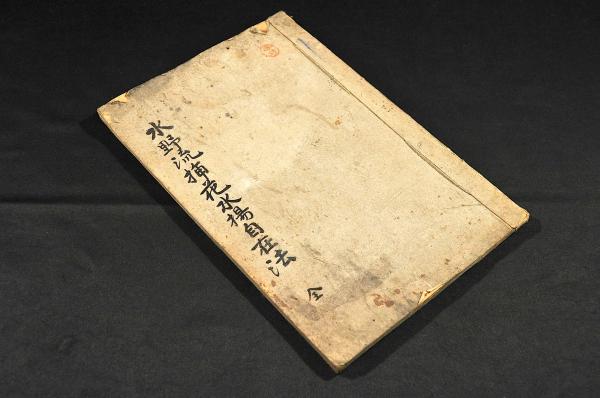 水野流挿花水揚自在法
全